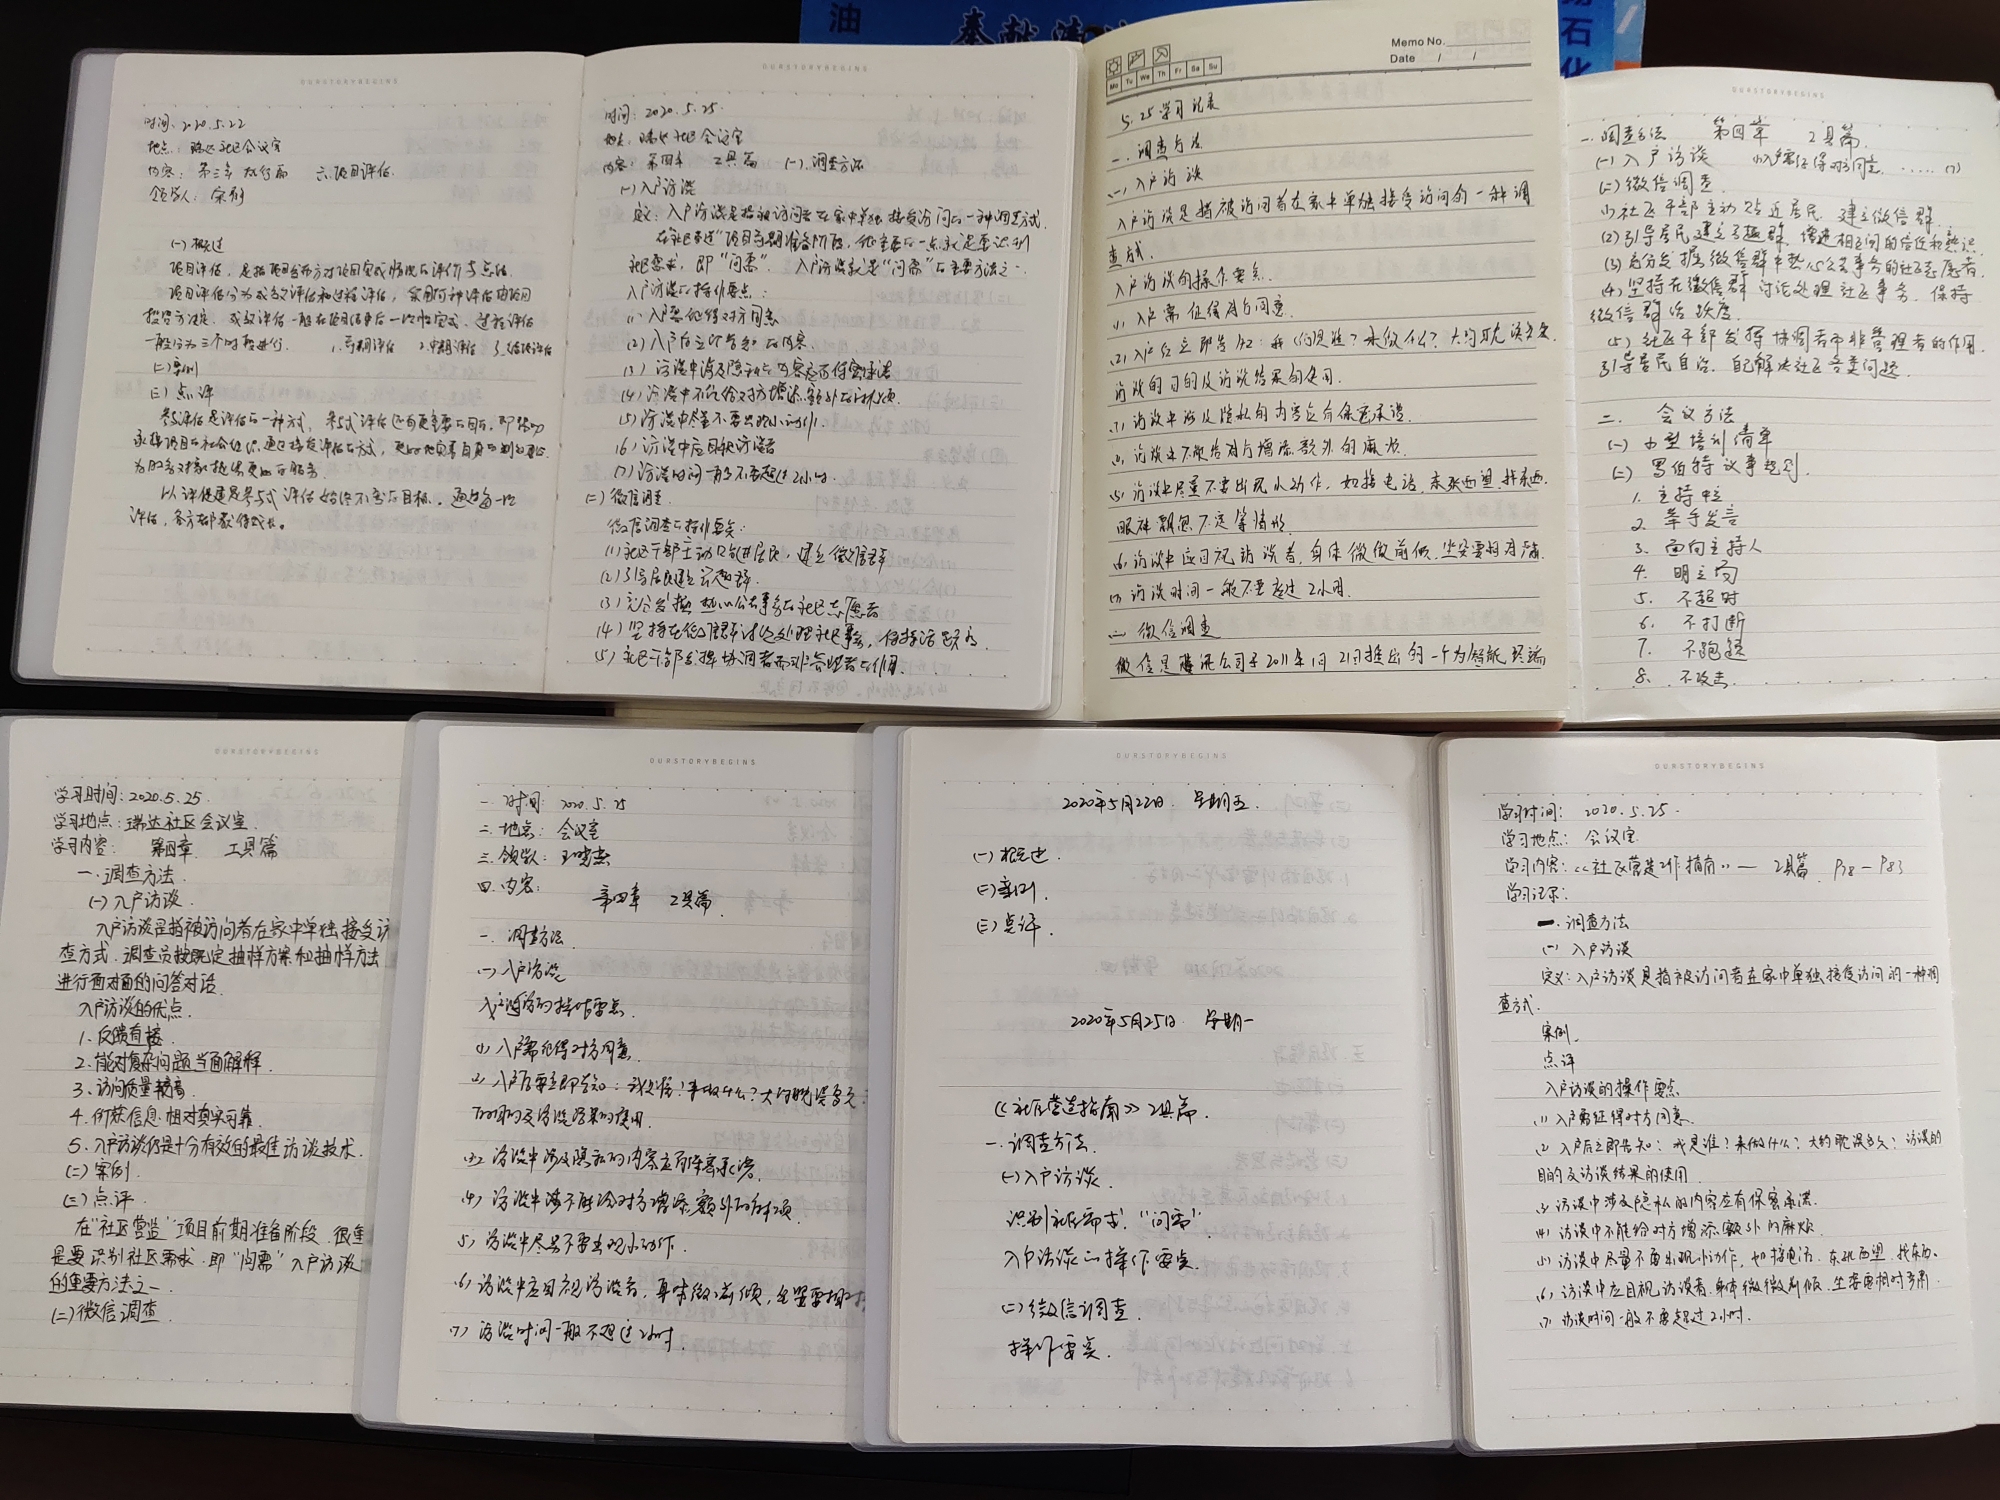 油
奉献清
石
化
OURSTORYBEGINS
时间:2020.5.22
地点:瑞达社区会议室
内容:第三章 执行篇 六.项目评估.
领学人:
(一)概述
项目评估,是指项目 对项目完成情况的评价与总结.
项目评估分为成效评估和过程评估,采用何种评估由项目
投资方决定.成效评估一般在项目结束后一次性完成.过程评估
一般分为三个时段进行. 1.前期评估 2.中期评估 3.末期评估
(二)案例
(三)点评
参与式评估是评估的一种方式,参与式评估还有更重要的目的,即帮助
承接项目的社会组织,通过接受评估的方式,更好地完善自身
为服务对象提供更好的服务
以评促建是参与式评估始终不变的目标.通过每一次
评估,各方都获得成长。
OURSTORYBEGINS
时间:2020.5.25.
地点:瑞达社区会议室
内容:第四章 工具篇 (一).调查方法
(一)入户访谈
定义:入户访谈是指被访问者在家中单独接受访问的一种调查方式.
在"社区营造"项目前期准备阶段,很重要的一点就是要识别
社区需求,即"问需". 入户访谈就是"问需"的重要方法之一.
入户访谈的操作要点:
(1)入户需征得对方同意
(2)入户后立即告知的内容.
(3)访谈中涉及隐私的内容应有保密承诺
(4)访谈中不能给对方增添额外的麻烦.
(5)访谈中尽量不要出现小动作.
(6)访谈中应目视访谈者
(7)访谈时间一般不要超过2小时.
(二)微信调查.
微信调查的操作要点:
(1)社区干部主动贴近居民,建立微信群
(2)引导居民建立 群.
(3)充分发掘热心公共事务的社区志愿者
(4)坚持在微信群讨论处理社区事务,保持活跃度
(5)社区干部发挥协调者而非管理者的作用.
Memo No.
Date / /
Mo Tu We Th Fr Sa Su
5.25学习记录
一.调查方法
(一)入户访谈
入户访谈是指被访问者在家中单独接受访问的一种调
查方式.
入户访谈的操作要点.
(1)入户需征得对方同意.
(2)入户后立即告知:我们是谁?来做什么?大约耽误多久.
访谈的目的及访谈结果的使用.
(3)访谈中涉及隐私的内容应有保密承诺.
(4)访谈中不能给对方增添额外的麻烦.
(5)访谈中尽量不要出现小动作.如接电话,东张西望,找东西.
眼神飘忽不定等情形.
(6)访谈中应目视访谈者,身体微微前倾.坐姿要相对
(7)访谈时间一般不要超过2小时.
二 微信调查
微信是腾讯公司于2011年1月21日推出的一个为智能终端
OURSTORYBEGINS
一.调查方法 第四章 工具篇.
(一)入户访谈 (1)入户需征得对方同意.……(7)
(二)微信调查.
(1)社区干部主动贴近居民,建立微信群.
(2)引导居民建立 群,增进相互间的信任和熟识
(3)充分发掘微信群中热心公共事务的社区志愿者.
(4)坚持在微信群讨论处理社区事务.保持
微信群活跃度.
(5)社区干部发挥协调者而非管理者的作用.
引导居民自治.自己解决社区各类问题.
二. 会议方法
(一)小型培训清单
(二)罗伯特议事规则.
1. 主持中立
2. 举手发言
3. 面向主持人
4. 明立场
5. 不超时
6. 不打断
7. 不跑题
8. 不攻击
OURSTORYBEGINS
学习时间:2020.5.25.
学习地点:瑞达社区会议室.
学习内容: 第四章 工具篇
一.调查方法.
(一)入户访谈.
入户访谈是指被访问者在家中单独接受访
查方式.调查员按既定抽样方案和抽样方法
进行面对面的问答对话.
入户访谈的优点.
1.反馈直接.
2.能对复杂问题当面解释.
3.访问质量较高.
4.所获信息相对真实可靠.
5.入户访谈仍是十分有效的最佳访谈技术.
(二)案例.
(三)点评.
在"社区营造"项目前期准备阶段.很重
是要识别社区需求.即"问需"入户访谈
的重要方法之一.
(二)微信调查.
OURSTORYBEGINS
一.时间: 2020.5.25
二.地点:会议室
三.领学:
四.内容: 第四章 工具篇.
一.调查方法
(一)入户访谈
入户访谈的操作要点.
(1)入户需征得对方同意
(2)入户后要立即告知:我是谁?来做什么?大约耽误多久?
目的及访谈结果的使用.
(3)访谈中涉及隐私的内容应有保密承诺.
(4)访谈中 不能给对方增添额外的麻烦.
(5)访谈中尽量不要出现小动作.
(6)访谈中应目视访谈者,身体微前倾,坐姿要相对
(7)访谈时间一般不超过2小时.
OURSTORYBEGINS
2020年5月22日. 星期五.
(一)概述.
(二)案例.
(三)点评.
2020年5月25日. 星期一
《社区营造指南》工具篇.
一.调查方法.
(一)入户访谈.
识别社区需求."问需"
入户访谈的操作要点.
(二)微信调查.
操作要点.
OURSTORYBEGINS
学习时间: 2020.5.25.
学习地点:会议室.
学习内容:《社区营造工作指南》— 工具篇 P78-P83
学习记录:
一.调查方法
(一)入户访谈
定义:入户访谈是指被访问者在家中单独接受访问的一种调
查方式.
案例.
点评
入户访谈的操作要点
(1)入户需征得对方同意.
(2)入户后立即告知:我是谁?来做什么?大约耽误多久?访谈的
目的及访谈结果的使用.
(3)访谈中涉及隐私的内容应有保密承诺.
(4)访谈中不能给对方增添额外的麻烦.
(5)访谈中尽量不要出现小动作,如接电话.东张西望.找东西.
(6)访谈中应目视访谈者.身体微微前倾.坐姿要相对
(7)访谈时间一般不要超过2小时.